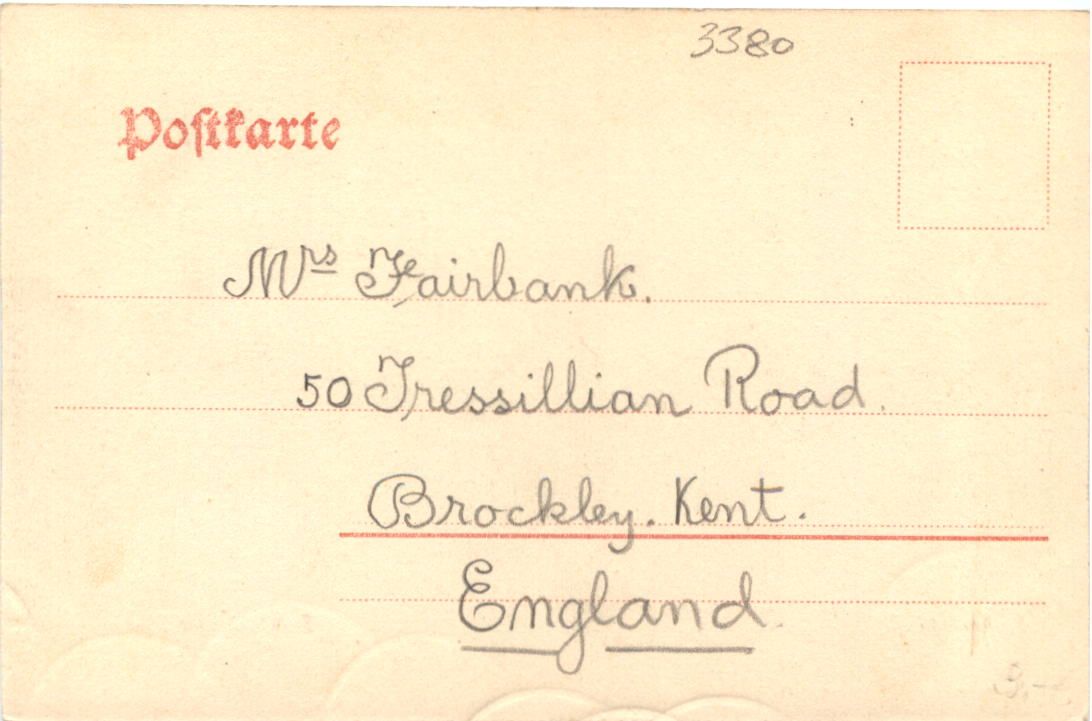 3380
Poſtkarte
Mrs Fairbank.
50 Tressillian Road.
Brockley. Kent.
England